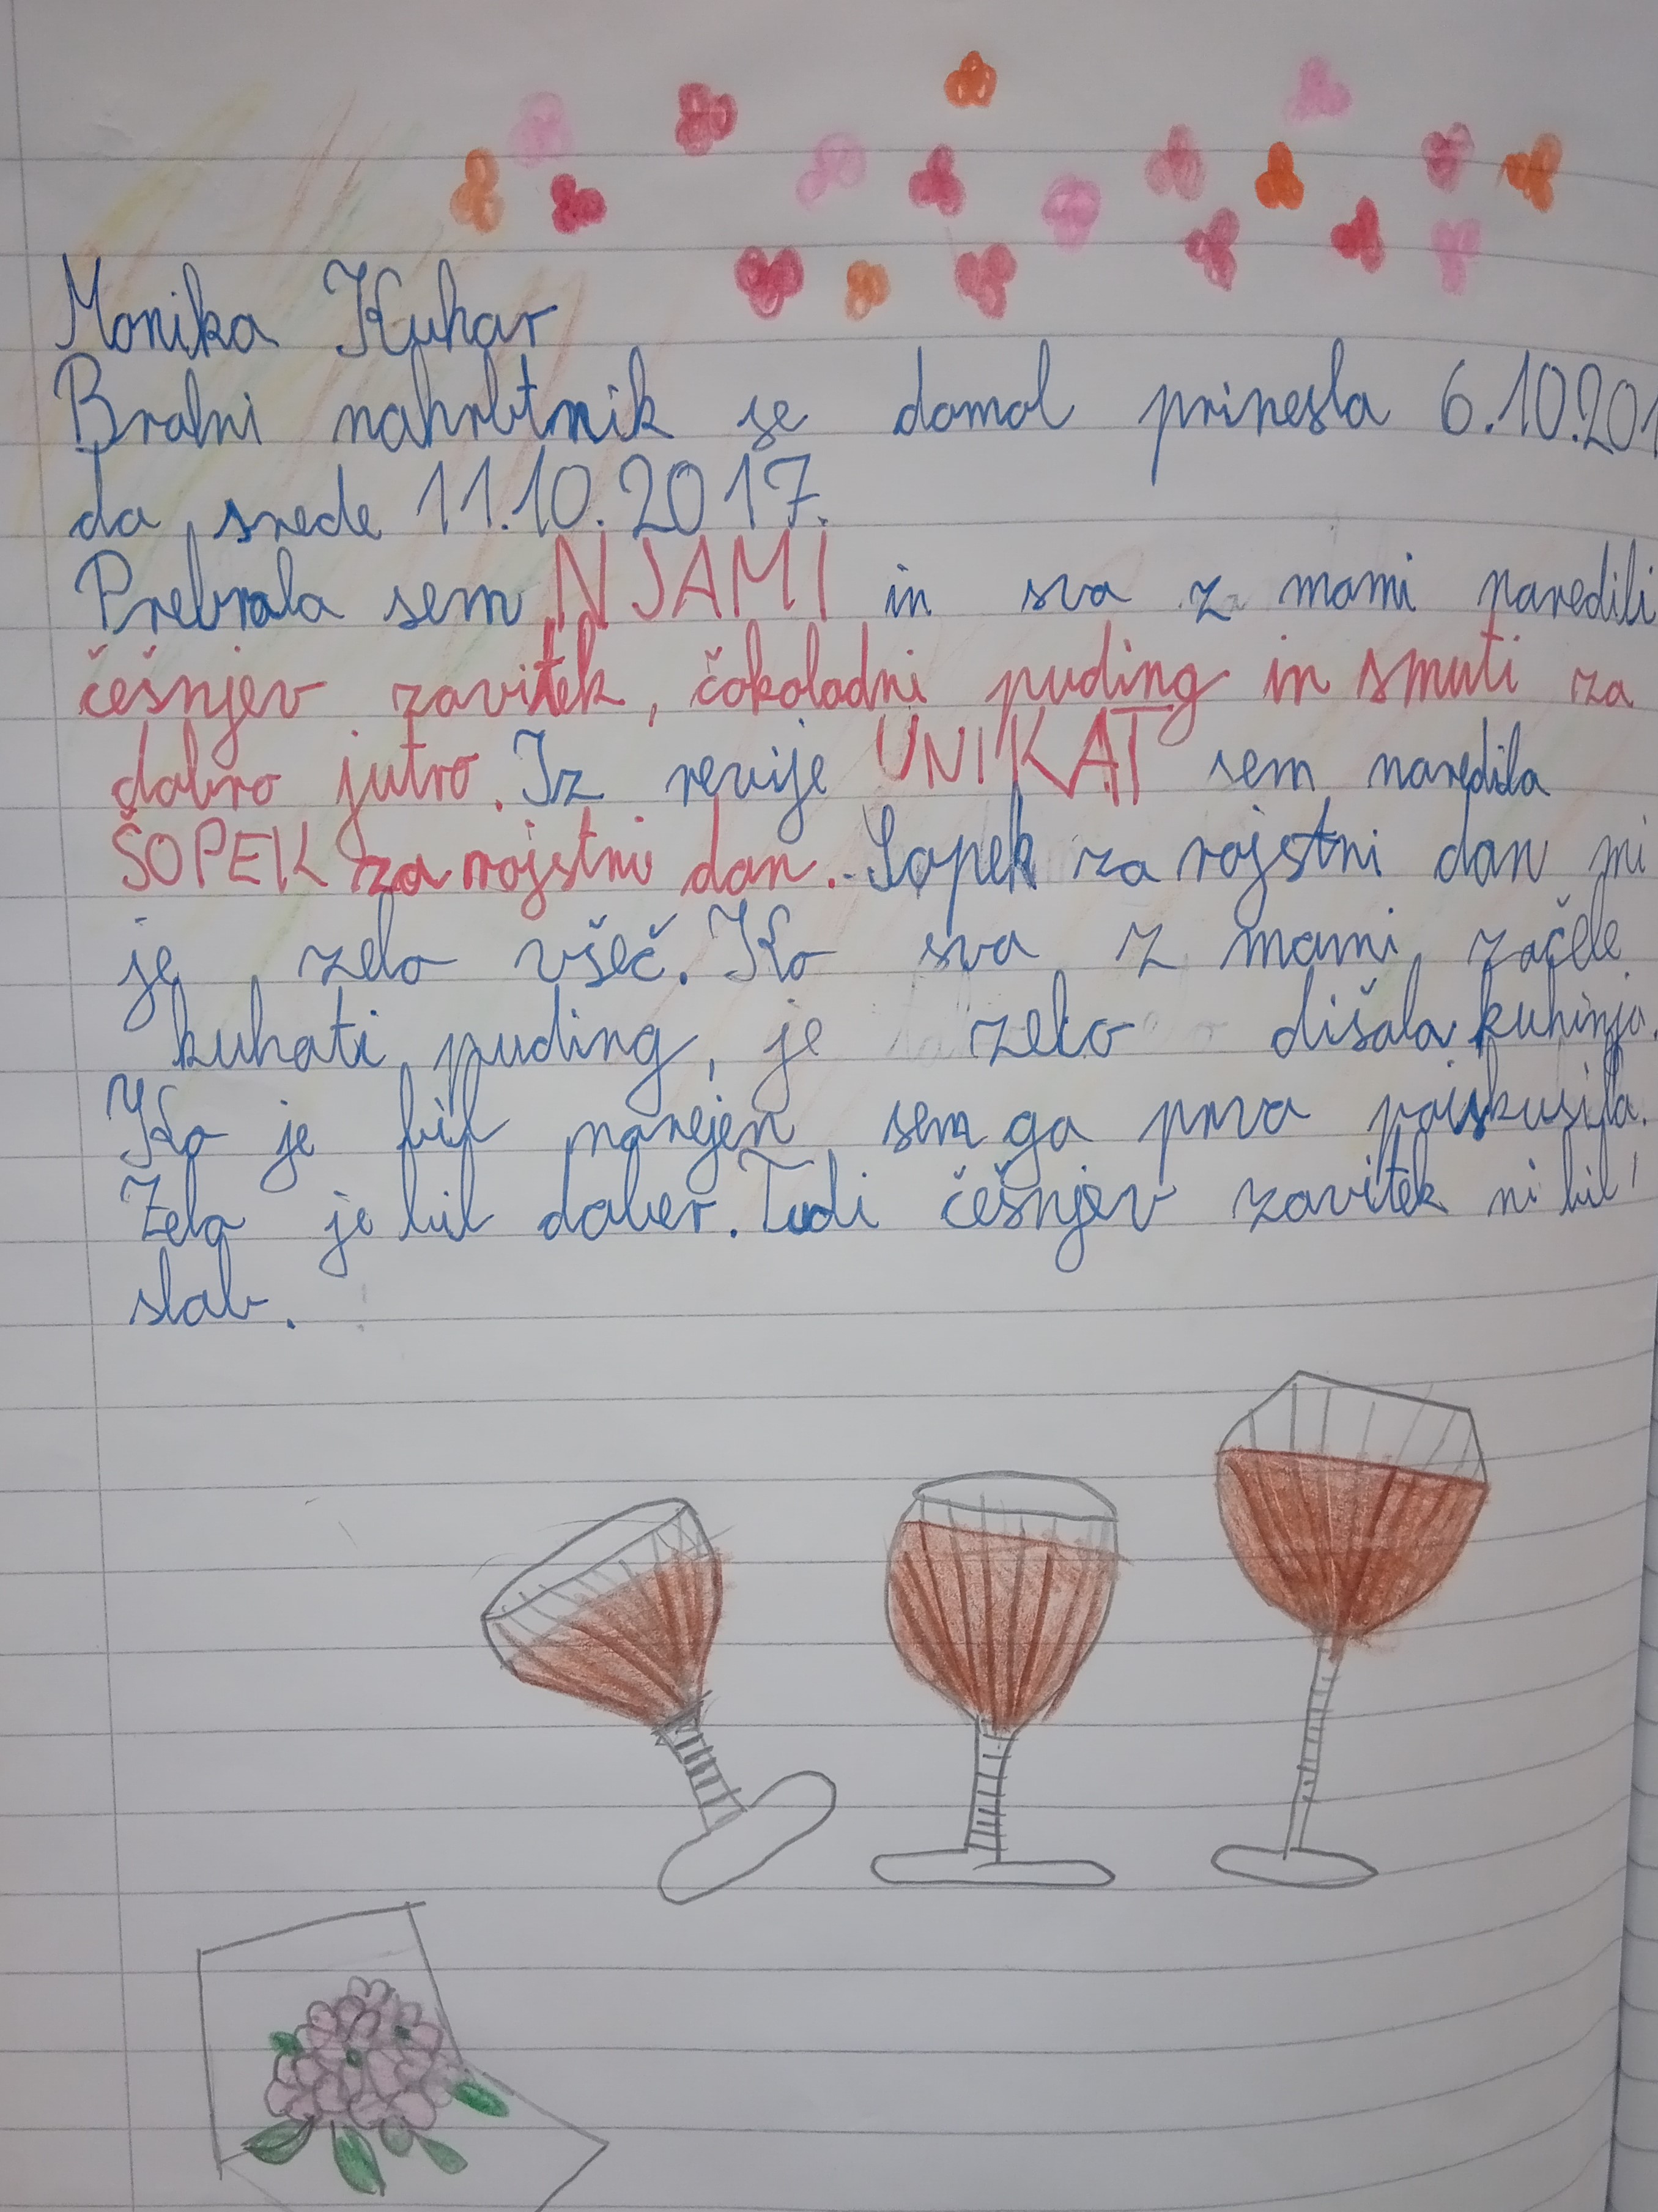 Monika Kuhar
Bralni nahrbtnik se domol prinesla 6.10.201
do srede 11.10.2017.
Prebrala sem NJAMI in sva z mami naredili
češnjev zavitek, čokoladni puding in smuti za
dobro jutro. Iz revije UNIKAT sem naredila
ŠOPEK za rojstni dan. Šopek za rojstni dan mi
je zelo všeč. Ko sva z mami začele
kuhati puding, je zelo dišala kuhinja.
Ko je bil narejen sem ga prva poiskusila.
Zelo je bil dober. Tudi češnjev zavitek ni bil
slab.